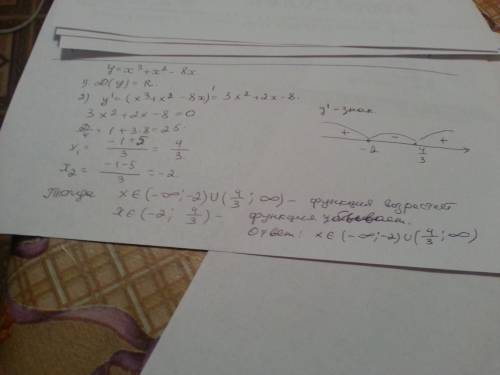 y = x³ + x² - 8x
1) D(y) = R.
2) y' = (x³ + x² - 8x)' = 3x² + 2x - 8.
3x² + 2x - 8 = 0
D/4 = 1 + 3·8 = 25
x₁ = (-1+5)/3 = 4/3
x₂ = (-1-5)/3 = -2.
y' - знак.
+ - +
-2 4/3
Тогда x ∈ (-∞; -2) ∪ (4/3; ∞) - функция возрастает
x ∈ (-2; 4/3) - функция убывает.
Ответ: x ∈ (-∞; -2) ∪ (4/3; ∞)